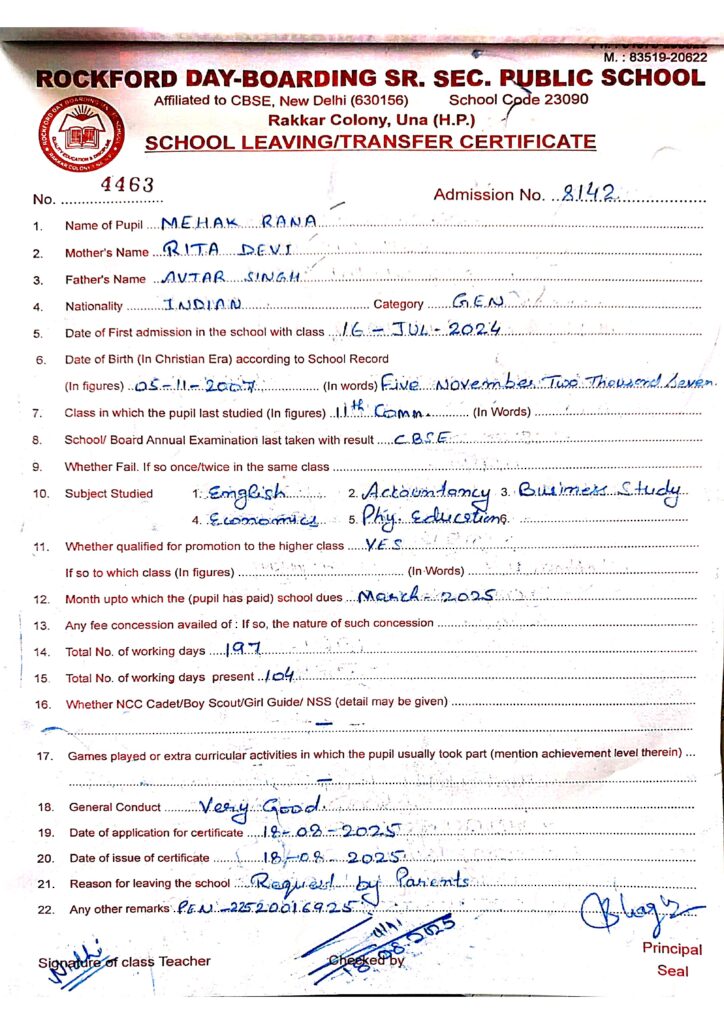 M. : 83519-20622
ROCKFORD DAY-BOARDING SR. SEC. PUBLIC SCHOOL
Affiliated to CBSE, New Delhi (630156) School Code 23090
Rakkar Colony, Una (H.P.)
SCHOOL LEAVING/TRANSFER CERTIFICATE
No. 4463 Admission No. 8142
1. Name of Pupil MEHAK RANA
2. Mother's Name RITA DEVI
3. Father's Name AVTAR SINGH
4. Nationality INDIAN Category GEN
5. Date of First admission in the school with class 16-JUL-2024
6. Date of Birth (In Christian Era) according to School Record
(In figures) 05-11-2007 (In words) Five November Two Thousand Seven
7. Class in which the pupil last studied (In figures) 11th Comm. (In Words)
8. School/ Board Annual Examination last taken with result CBSE
9. Whether Fail. If so once/twice in the same class
10. Subject Studied 1. English 2. Accountancy 3. Business Study
4. Economics 5. Phy. Education 6.
11. Whether qualified for promotion to the higher class YES
If so to which class (In figures) (In Words)
12. Month upto which the (pupil has paid) school dues March-2025
13. Any fee concession availed of : If so, the nature of such concession
14. Total No. of working days 197
15. Total No. of working days present 104
16. Whether NCC Cadet/Boy Scout/Girl Guide/ NSS (detail may be given)
—
17. Games played or extra curricular activities in which the pupil usually took part (mention achievement level therein)
—
18. General Conduct Very Good.
19. Date of application for certificate 18-08-2025
20. Date of issue of certificate 18-08-2025
21. Reason for leaving the school Request by Parents
22. Any other remarks PEN-22520016925
18-08-2025
Signature of class Teacher Checked by Principal
Nidhi
Seal